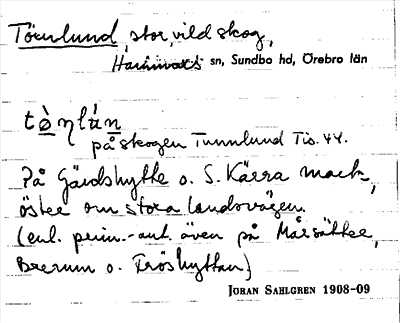 Törnlund, stor, vild skog,
Hammars sn, Sundbo hd, Örebro län
tò̱ηlán
på skogen Tunnlund Tis. 44.
På Gärdshytte o. S. Kärra mark,
öster om stora landsvägen.
(enl. prim.-ant. även på Mårsätter,
Brerum o. Fröshyttan)
JOHAN SAHLGREN 1908-09